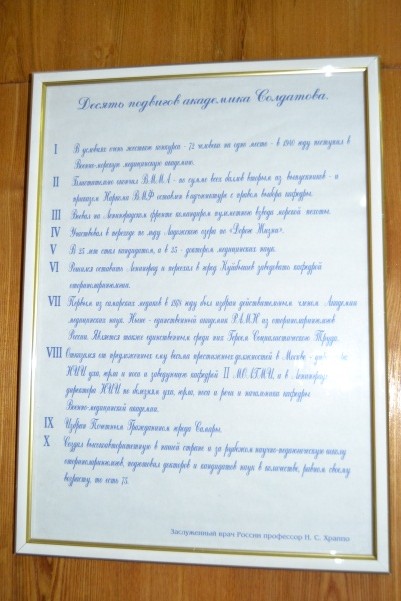 Десять подвигов академика Солдатова.
I В условиях очень жестокого конкурса - 72 человека на одно место - в 1940 году поступил в
Военно-морскую медицинскую академию.
II Блистательно закончил В.М.М.А - по сумме всех баллов вторым из выпускников - и
приказом Наркома ВМФ оставлен в адъюнктуре с правом выбора кафедры.
III Воевал на Ленинградском фронте командиром пулеметного взвода морской пехоты.
IV Участвовал в переходе по льду Ладожского озера по «Дороге Жизни».
V В 25 лет стал кандидатом, а в 35 - доктором медицинских наук.
VI Решился оставить Ленинград и переехал в город Куйбышев заведовать кафедрой
оториноларингологии.
VII Первым из самарских медиков в 1978 году был избран действительным членом Академии
медицинских наук. Ныне - единственный академик РАМН из оториноларингологов
России. Является также единственным среди них Героем Социалистического Труда.
VIII Отказался от предложенных ему весьма престижных должностей в Москве -
НИИ уха, горла и носа и заведующего кафедрой II МОЛГМИ, и в Ленинграде
директора НИИ по болезням уха, горла, носа и речи и начальника кафедры
Военно-медицинской академии.
IX Избран Почетным Гражданином города Самары.
X Создал высокоавторитетную в нашей стране и за рубежом научно-педагогическую школу
оториноларингологов, подготовил докторов и кандидатов наук в количестве, равном своему
возрасту, то есть 75.
Заслуженный врач России профессор Н. С. Храппо